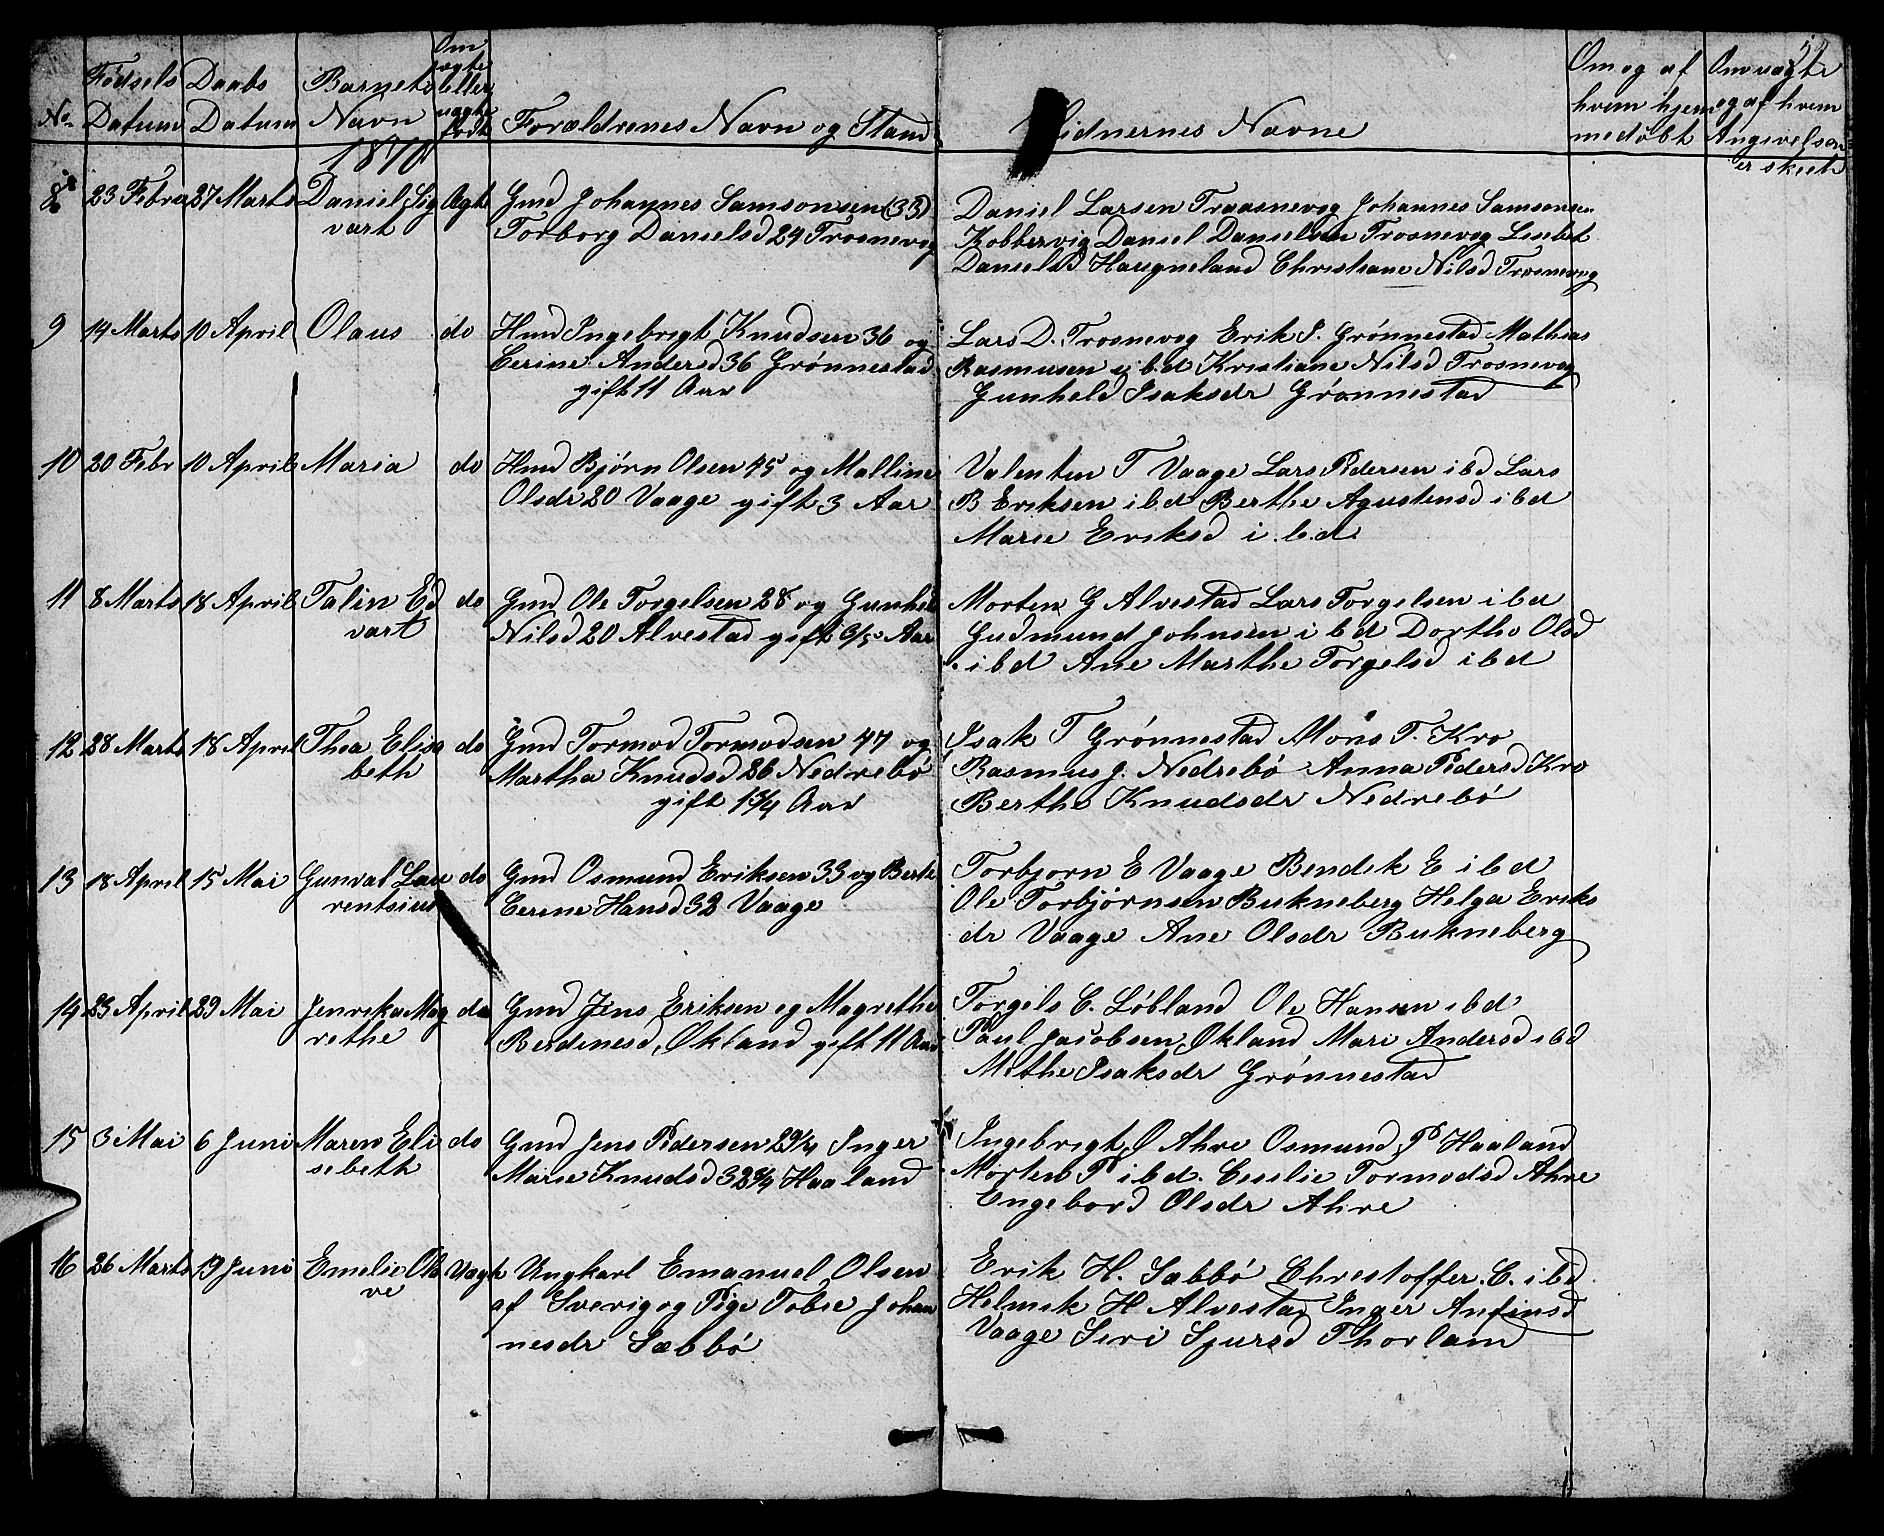 No. Fødsels Datum Daabs Datum Barnets Navn Om ægte eller uægte født Forældrenes Navn og Stand
Vidnernes Navne
Om og af hvem hjemmedøbt
Om uægte og af hvem Angivelsen er skeet
1870
8 23 Febru 27 Marts Daniel Sig Ægte Gmd Johannes Samsonsen (33)
vart Torborg Danielsd 24 Trosnevog
Daniel Larsen Traasnevog Johannes Samsonsen
Kobbervig Daniel Danielsen Trosnevog Lisebet
Danielsd Haugneland Christiane Nilsd Trosnevog
9 14 Marts 10 April Olaus do Hmd Ingebrigt Knudsen 36 og
Cerine Andersd 36 Grønnestad
gift 11 Aar
Lars D. Trosnevog Erik I. Grønnestad Mathias
Rasmusen i b d Kristiane Nilsd Trosnevog
Gunhild Isaksdr Grønnestad
10 20 Febr 10 April Maria do Hmd Bjørn Olsen 45 og Malline
Olsdr 20 Vaage gift 3 Aar
Valenten T Vaage Lars Pedersen i b d Lars
B Eriksen i b d Berthe Agustensd i b d
Marie Eriksd i b d
11 8 Marts 18 April Talin Ed do Gmd Ole Torgelsen 28 og Gunhel
vart Nilsd 20 Alvestad gift 3/5 Aar
Morten G Alvestad Lars Torgelsen i b d
Gudmund Johnsen i b d Dorthe Olsd
i b d Ane Marthe Torgelsd i b d
12 28 Marts 18 April Thea Elisa do Gmd Tormod Tormodsen 47 og
beth Martha Knudsd 26 Nedrebø
gift 1 3/4 Aar
Isak T Grønnestad Mons T. Kro
Rasmus J. Nedrebø Anna Pedersd Kro
Berthe Knudsdr Nedrebø
13 18 April 15 Mai Gunval Lau do Gmd Osmund Eriksen 33 og Berte
rentsius Cerine Hansd 32 Vaage
Torbjorn E Vaage Bendik E i b d
Ole Torbjørnsen Bukneberg Helga Eriks
dr Vaage Ane Olsdr Bukneberg
14 23 April 29 Mai Jenrika Mag do Gmd Jens Eriksen og Magrethe
rethe Berdinesd, Økland gift 11 Aar
Torgils C. Løbland Ole Hansen i b d
Paul Jacobsen Økland Mari Andersd i b d
Mithe Isaksdr Grønnestad
15 3 Mai 6 Juni Maren Eli do Gmd Jens Pedersen 29 1/4 Inger
sebeth Marie Knudsd 32 3/4 Haaland
Ingebrigt O Ahre Osmund P Haaland
Morten P i b d. Ceselie Tormodsd Ahre
Engebord Olsdr Ahre
16 26 Marts 19 Juni Emelie Oli Uægte Ungkarl Emanuel Olsen
ve af Sverig og Pige Tobie Johan
nesdr Sæbbø
Erik H. Sæbbø Chrestoffer C. i b d
Helmik H Alvestad Inger Anfinsd
Vaage Seri Sjursd Thorland